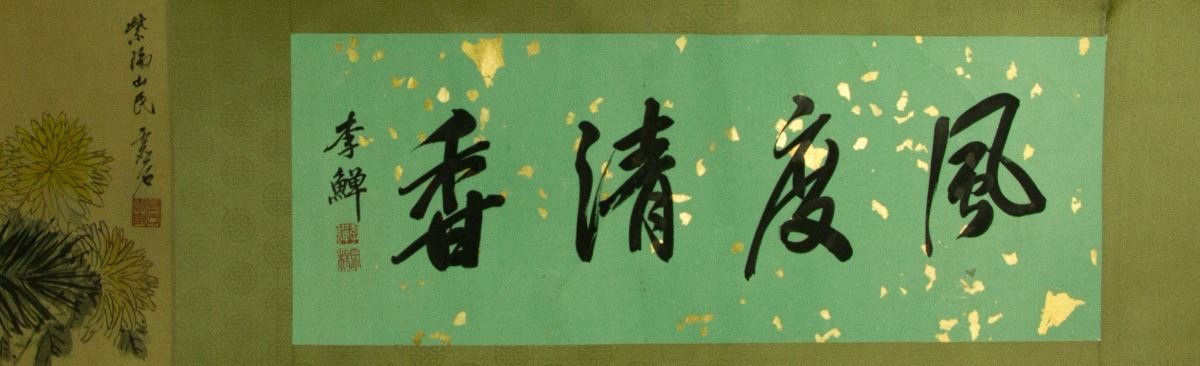 風度清香
李鱓
紫陽山民